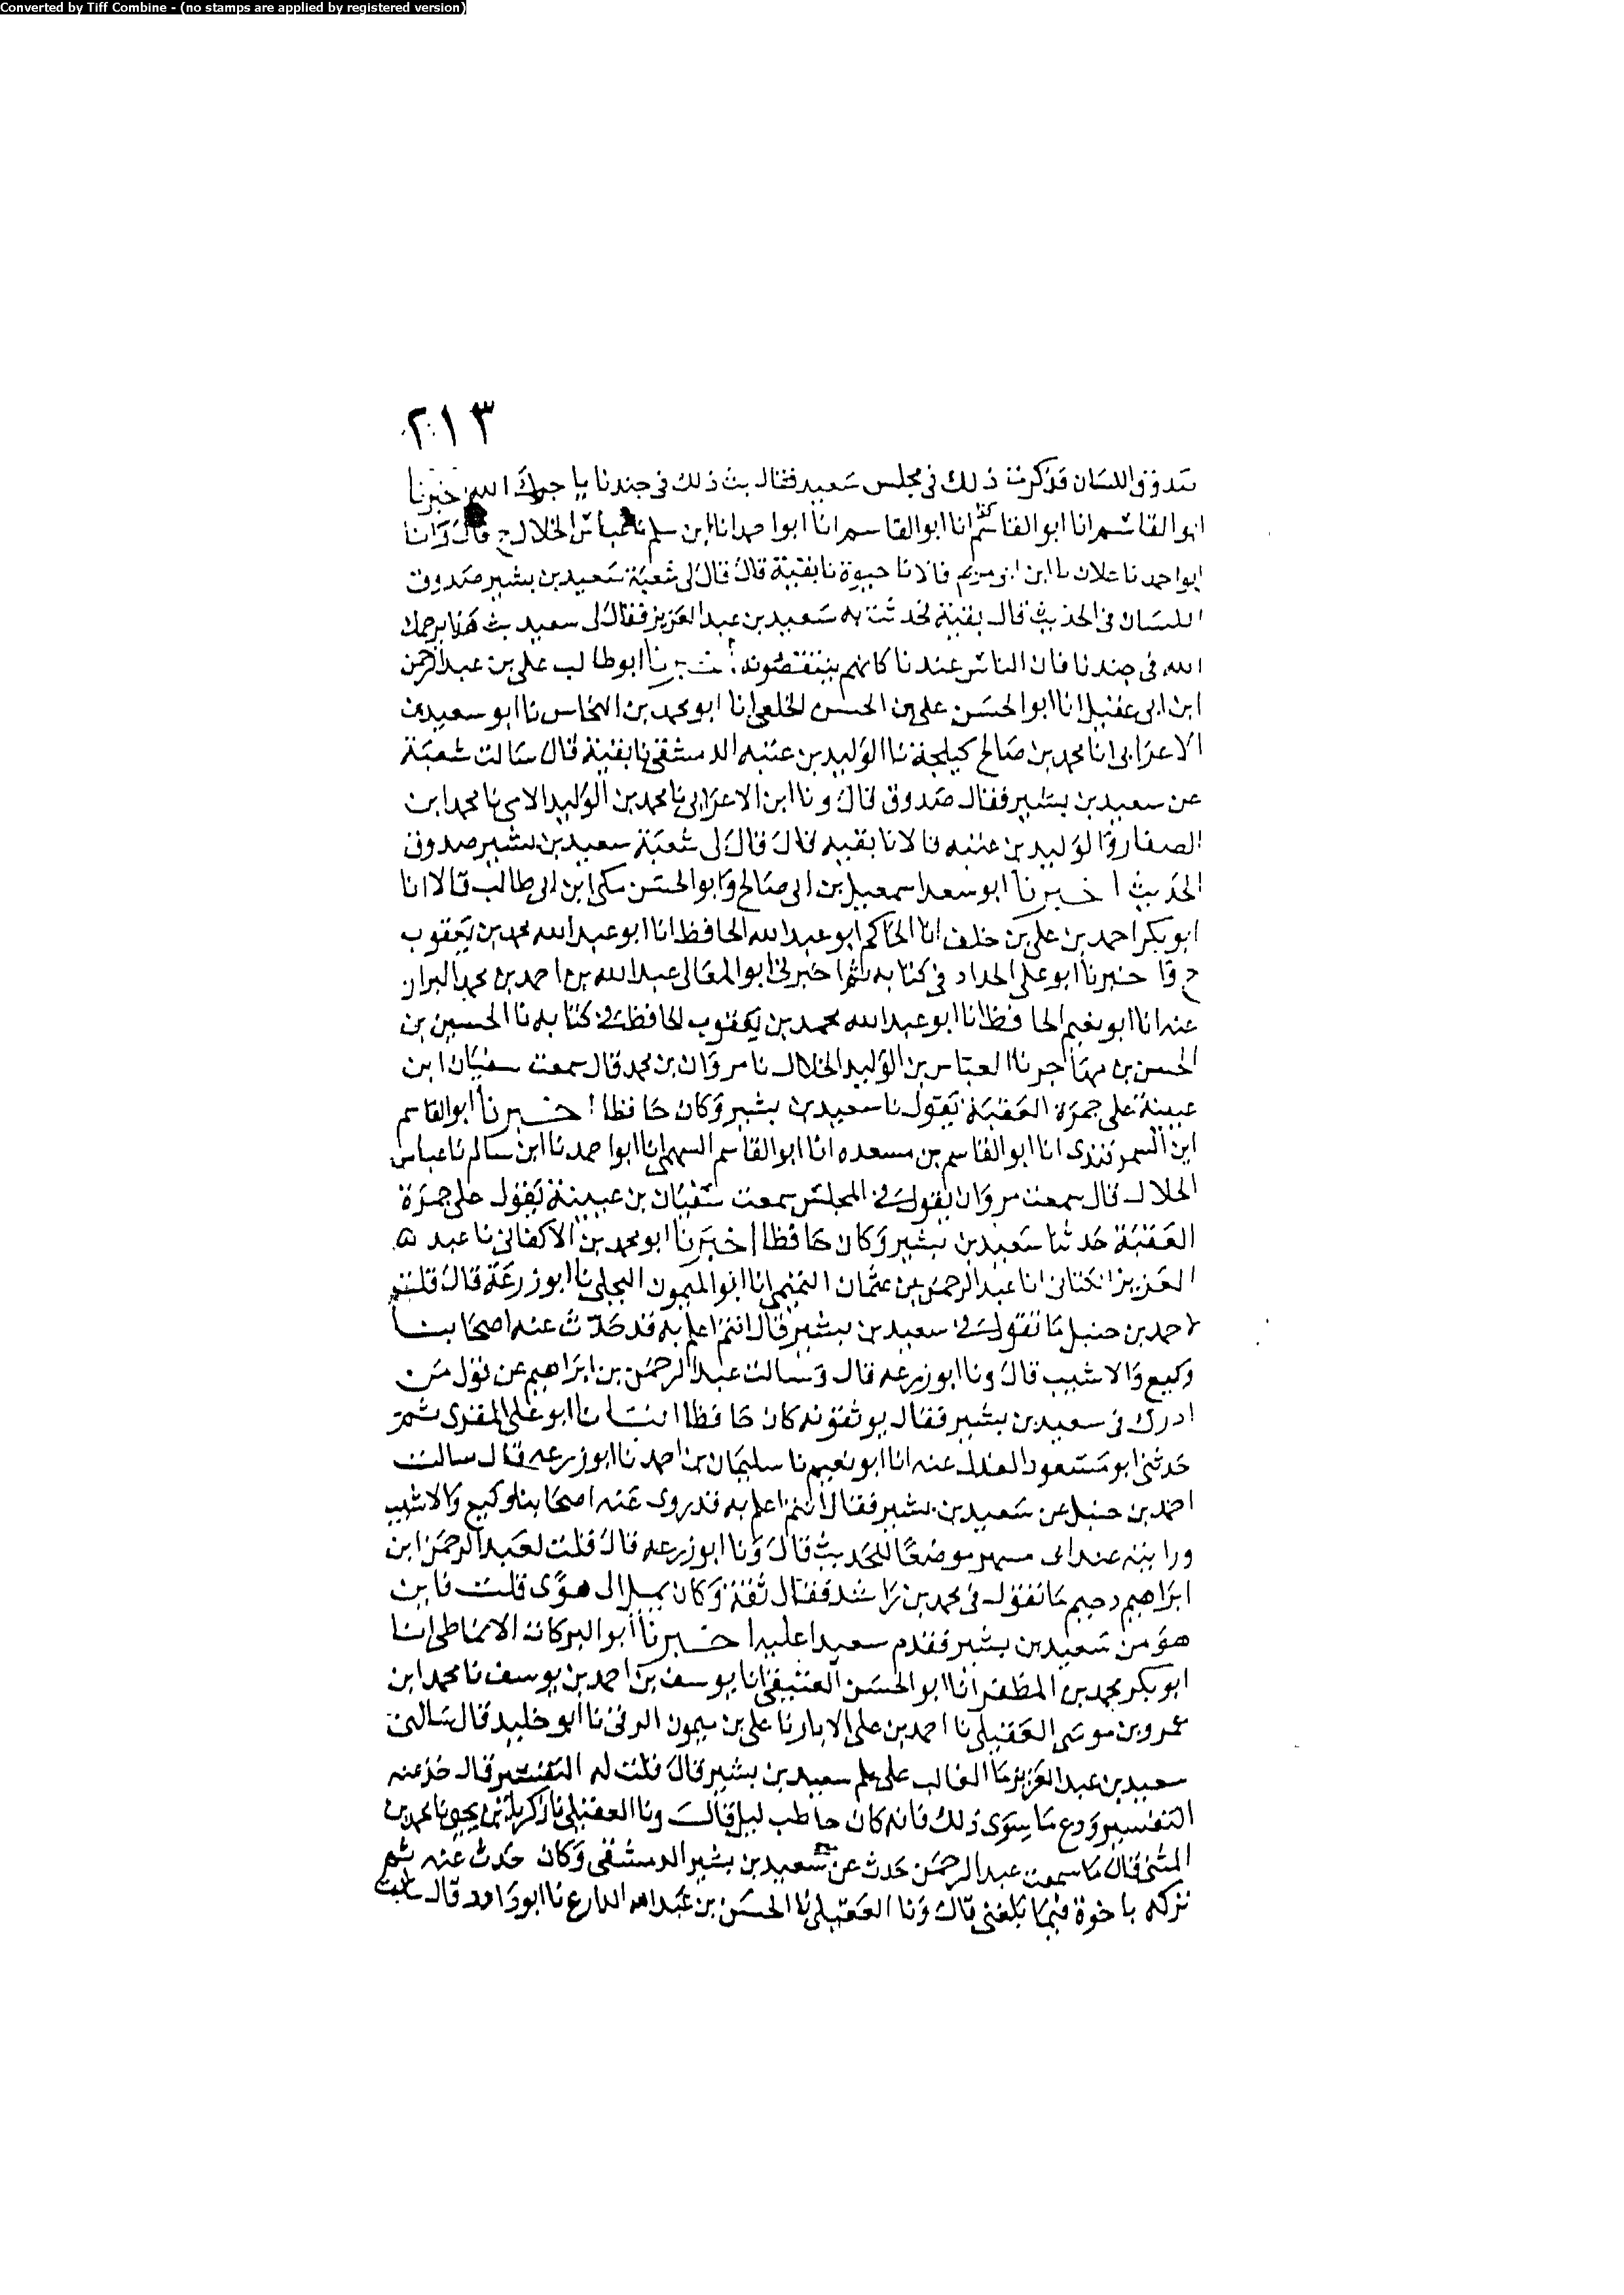 Converted by Tiff Combine - (no stamps are applied by registered version)
٢١٣
صدوق اللسان فذكرت ذلك في مجلس سعيد فقال بث ذلك في جندنا يا رحمك الله اخبرنا
ابو القاسم انا ابو القاسم انا ابو القاسم انا ابو احمد انا ابن سلم نا عباس الخلال ح قال وانا
ابو احمد نا علان نا ابن ابي مريم قالا نا حيوة نا بقية قال قال لي شعبة سعيد بن بشير صدوق
اللسان في الحديث قال بقية فحدثت به سعيد بن عبد العزيز فقال لي سعيد بث هذا يرحمك
الله في جندنا فان الناس عندنا كانهم ينتقصونه اخبرنا ابو طالب علي بن عبد الرحمن
ابن ابي عقيل انا ابو الحسن علي بن الحسن الخلعي انا ابو محمد بن النحاس نا ابو سعيد بن
الاعرابي انا محمد بن صالح كيلجة نا الوليد بن عتبه الدمشقي نا بقية قال سالت شعبة
عن سعيد بن بشير فقال صدوق قال ونا ابن الاعرابي نا محمد بن الوليد الامي نا محمد ابن
الصفار والوليد بن عتبه قالا نا بقيه قال قال لي شعبة سعيد بن بشير صدوق
الحديث اخبرنا ابو سعد اسمعيل بن ابي صالح وابو الحسن مكي ابن ابي طالب قالا انا
ابو بكر احمد بن علي بن خلف انا الحاكم ابو عبد الله الحافظ انا ابو عبد الله محمد بن يعقوب
ح واخبرنا ابو علي الحداد في كتابه ثم اخبرني ابو المعالي عبد الله بن احمد بن محمد البزان
عنه انا ابو نعيم الحافظ انا ابو عبد الله محمد بن يعقوب الحافظ في كتابه نا الحسين بن
الحسن بن مهاجر نا العباس بن الوليد الخلال نا مروان بن محمد قال سمعت سفيان ابن
عيينة على جمرة العقبة يقول نا سعيد بن بشير وكان حافظا اخبرنا ابو القاسم
ابن السمرقندي انا ابو القاسم بن مسعده انا ابو القاسم السهمي انا ابو احمد نا ابن سالم نا عباس
الخلال قال سمعت مروان يقول في المجلس سمعت سفيان بن عيينة يقول على جمرة
العقبة حدثنا سعيد بن بشير وكان حافظا اخبرنا ابو محمد بن الاكفاني نا عبد
العزيز الكتاني انا عبد الرحمن بن عثمان التميمي انا ابو الميمون البجلي نا ابو زرعة قال قلت
لاحمد بن حنبل ما تقول في سعيد بن بشير قال انتم اعلم به قد حدث عنه اصحابنا
وكيع والاشيب قال ونا ابو زرعه قال وسالت عبد الرحمن بن ابراهيم عن قول من
ادرك في سعيد بن بشير فقال يوثقونه كان حافظا انبانا ابو علي المقري ثم
حدثني ابو مسعود المعدل عنه انا ابو نعيم نا سليمان بن احمد نا ابو زرعه قال سالت
احمد بن حنبل عن سعيد بن بشير فقال انتم اعلم به قد روى عنه اصحابنا وكيع والاشيب
ورايته عند ابي مسهر موضعا للحديث قال ونا ابو زرعه قال قلت لعبد الرحمن ابن
ابراهيم دحيم ما تقول في محمد بن راشد فقال ثقة وكان يميل الى هوى قلت فاين
هو من سعيد بن بشير فقدم سعيدا عليه اخبرنا ابو البركات الانماطي انا
ابو بكر محمد بن المظفر انا ابو الحسن العتيقي انا يوسف بن احمد بن يوسف نا محمد ابن
عمرو بن موسى العقيلي نا احمد بن علي الابار نا علي بن ميمون الرقي نا ابو خليد قال سالني
سعيد بن عبد العزيز ما الغالب على علم سعيد بن بشير قال قلت له التفسير قال خذ عنه
التفسير ودع ما سوى ذلك فانه كان حاطب ليل قال ونا العقيلي نا زكريا بن يحيى نا محمد بن
المثنى قال ما سمعت عبد الرحمن حدث عن سعيد بن بشير الدمشقي وكان حدث عنه ثم
تركه باخرة فيما بلغني قال ونا العقيلي نا الحسن بن عبد الله الدارع نا ابو داود قال سالت